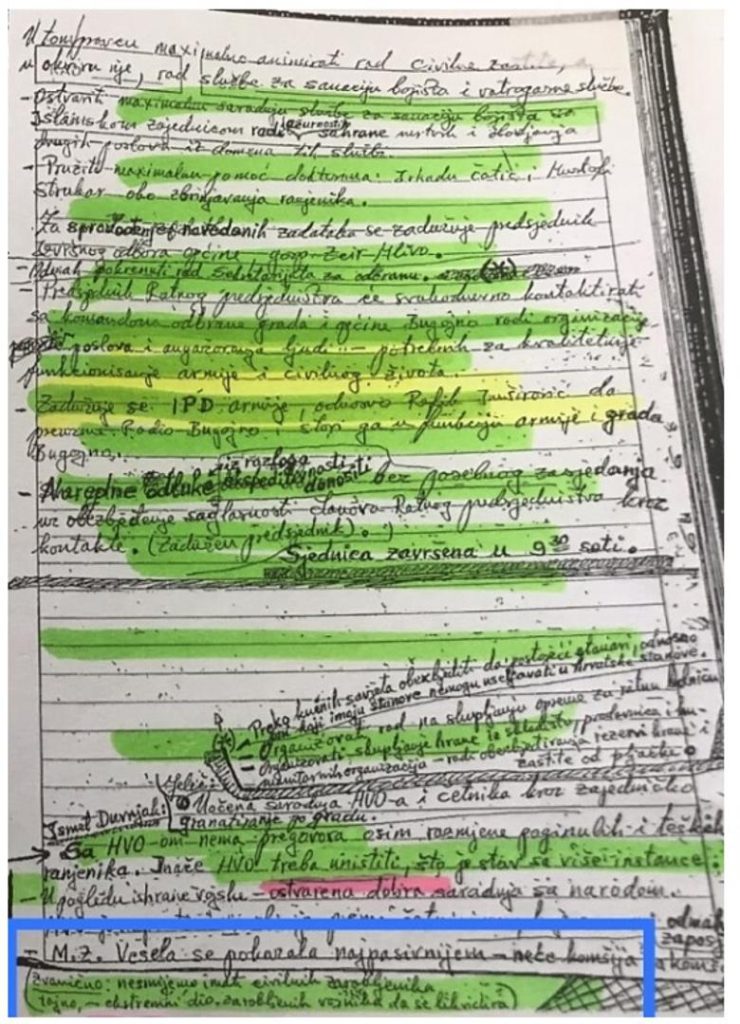 U tom pravcu maximalno animirati rad civilne zaštite, a
u okviru nje, rad službe za sanaciju bojišta i vatrogasne službe.
- Ostvarit maksimalnu saradnju službe za sanaciju bojišta sa
Islamskom zajednicom radi ažurnosti sahrane mrtvih i obavljanja
drugih poslova iz domena tih službi.
- Pružiti maksimalnu pomoć doktorima: Irhadu Čatić, Mustafi
Strukar oko zbrinjavanja ranjenika.
Za sprovođenje navedenih zadataka se zadužuje predsjednik
Izvršnog odbora općine gosp. Zeir Mlivo.
- Odmah pokrenuti rad Sekretarijata za odbranu.
- Predsjednik Ratnog predsjedništva će svakodnevno kontaktirati
sa komandom odbrane grada i općine Bugojno radi organizacije
poslova i angažovanja ljudi - potrebnih za kvalitetnije
funkcionisanje armije i civilnog života.
- Zadužuje se IPD armije, odnosno Rafib da
preuzme Radio Bugojno i stavi ga u funkciju armije i grada
Bugojna.
- Naredne odluke iz razloga ekspeditivnosti donositi bez posebnog zasjedanja
uz obezbjeđenje saglasnosti članova Ratnog predsjedništva kroz
kontakte. (Zadužen predsjednik).
Sjednica završena u 9 30 sati.
Preko kućnih savjeta obezbjediti da postojeći stanari, odnosno
oni koji imaju stanove nemogu useljavati u hrvatske stanove.
- Organizovat rad na skupljanju opreme za ratnu bolnicu
- Organizovati skupljanje hrane iz skladišta, prodavnica i hu-
manitarnih organizacija - radi obezbjeđivanja rezervi hrane i
zaštite od pljačke.
Uočena saradnja HVO-a i četnika kroz zajedničko
granatiranje po gradu.
Ismet Durmjak:
Sa HVO-om nema pregovora osim razmjene poginulih i teških
ranjenika. Inače HVO treba uništiti, što je stav sa više instance.
- U pogledu ishrane vojske - ostvarena dobra saradnja sa narodom.
- M.Z. Vesela se pokazala najpasivnijem - neće komšija
Zvanično: nesmijemo imati civilnih zarobljenika
Tajno, - ekstremni dio zarobljenih vojnika da se likvidira